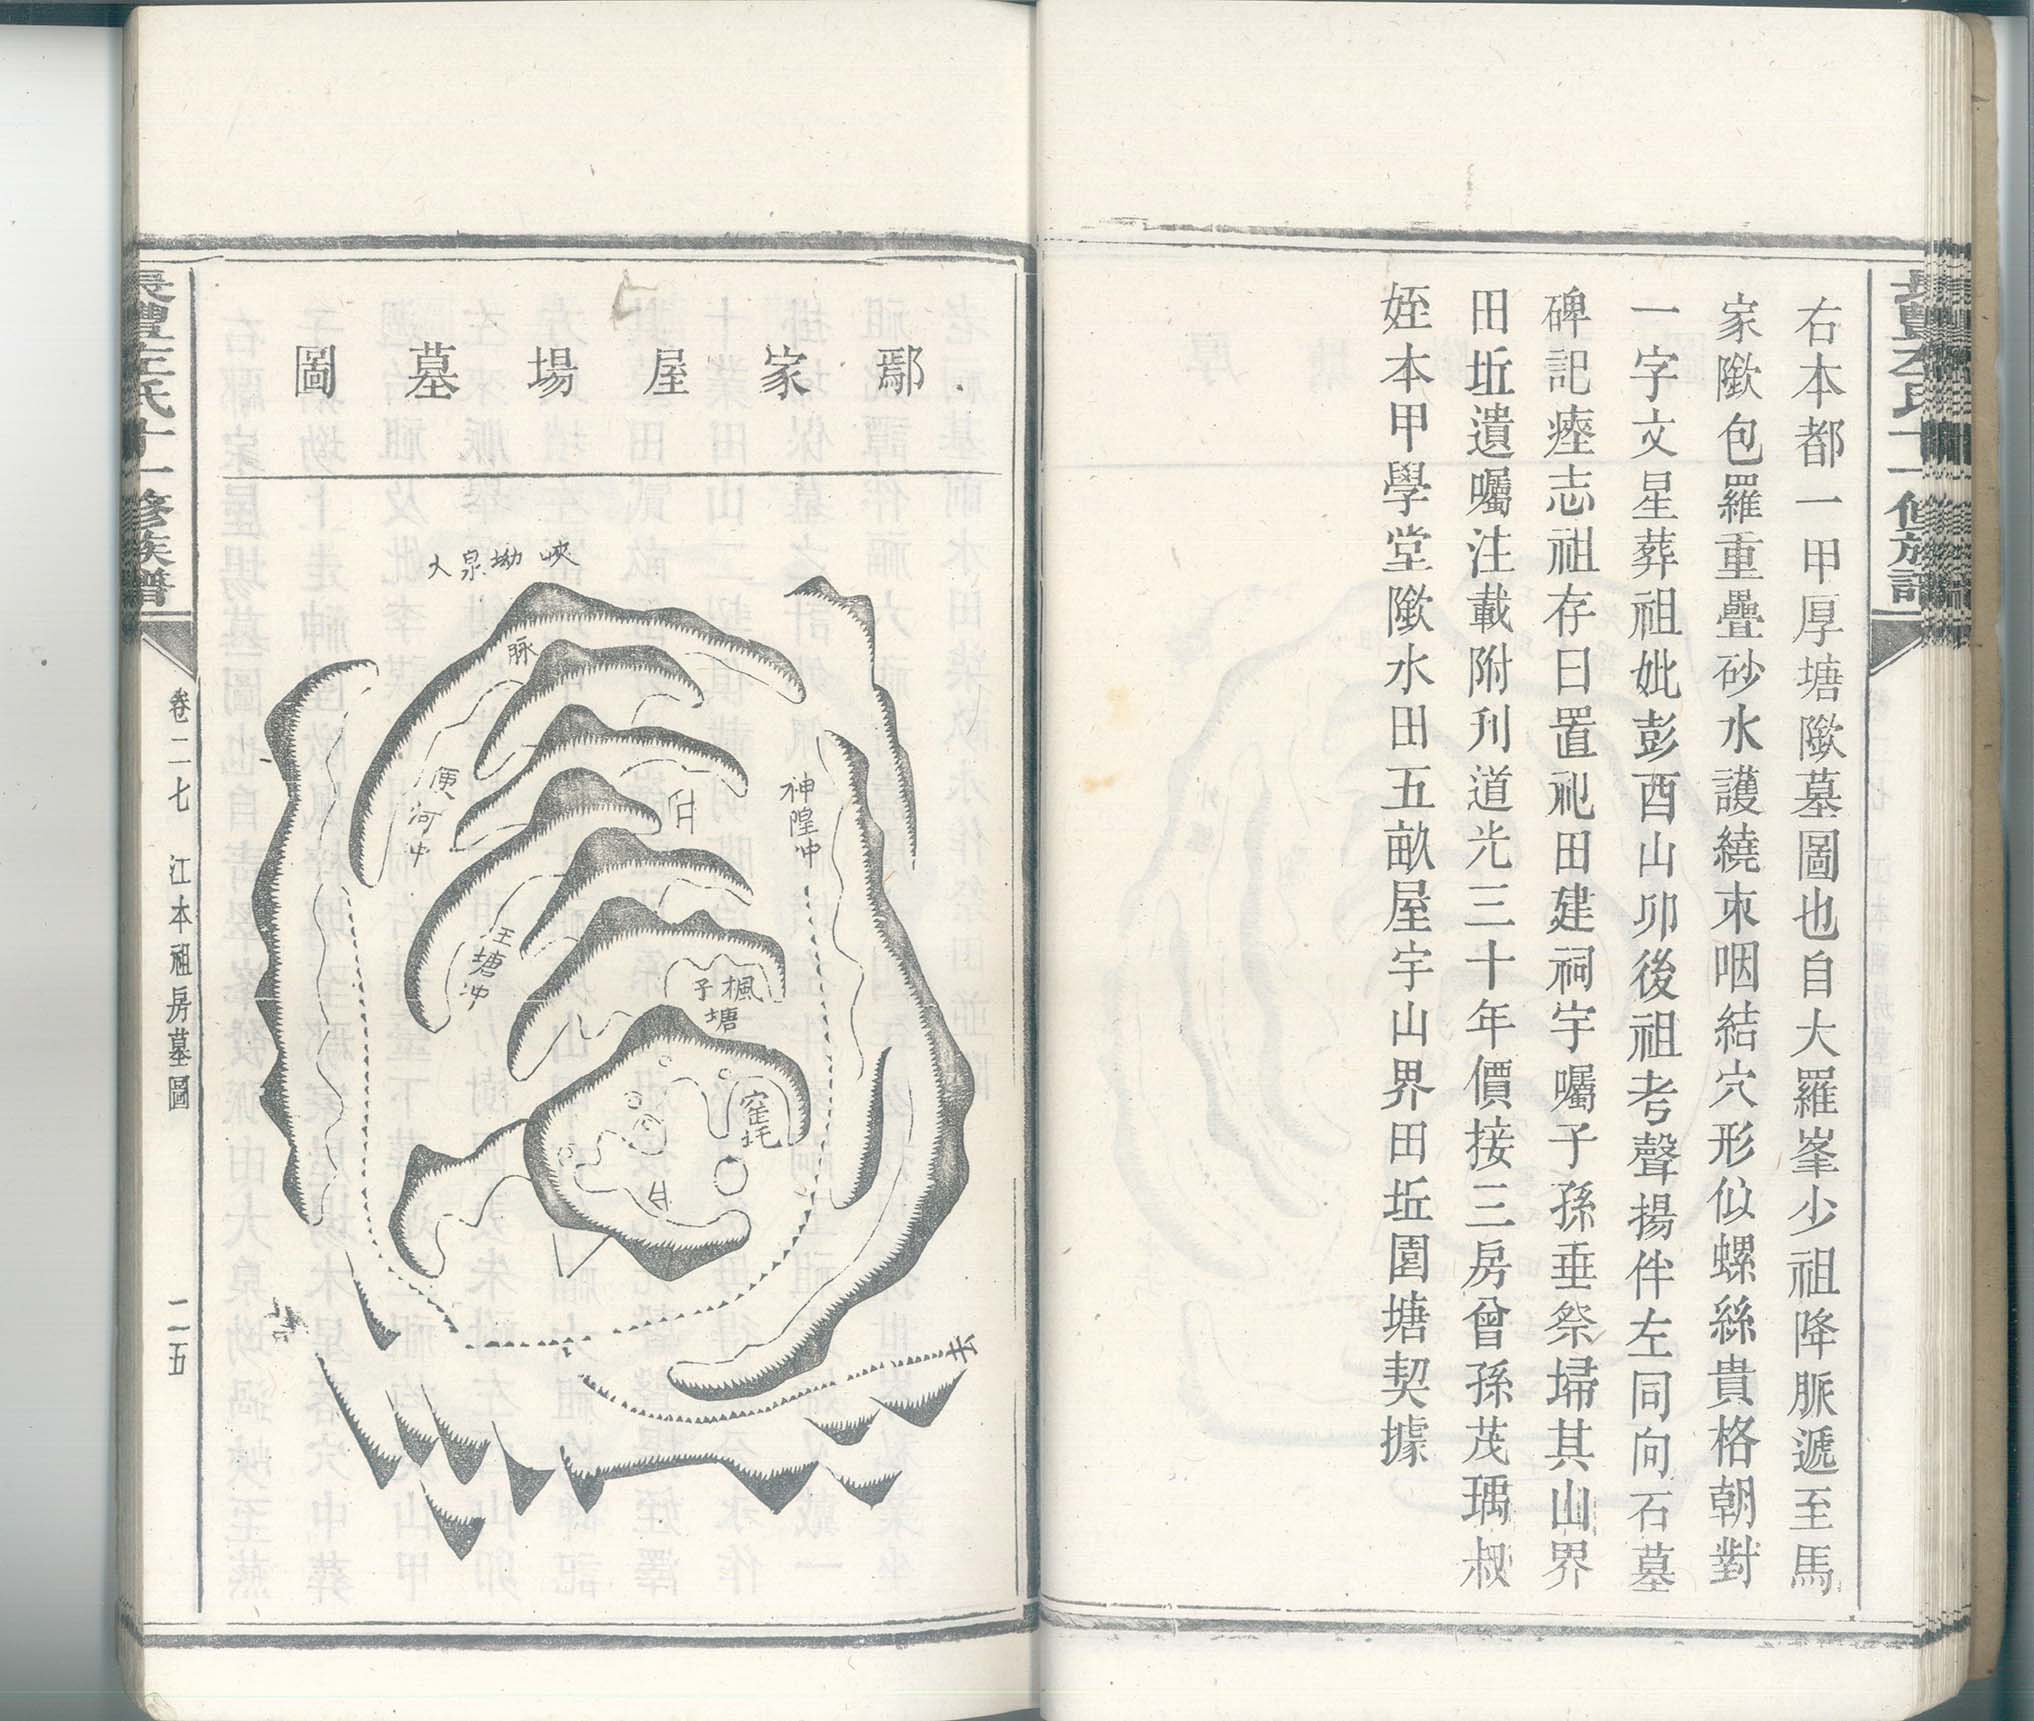 右本都一甲厚塘墩墓圖也自大羅峯少祖降脈遞至馬
家墩包羅重疊砂水護繞束咽結穴形似螺絲貴格朝對
一字文星葬祖妣彭酉山卯後祖考聲揚伴左同向石墓
碑記瘞志祖存日置祀田建祠宇囑子孫垂祭埽其山界
田坵遺囑注載附刋道光三十年價接三房曾孫茂瑀叔
姪本甲學堂墩水田五畝屋宇山界田坵園塘契據
鄢家屋場墓圖
峽坳泉大
脉
便河冲
神隍冲
王塘冲
楓子塘
窑坉
去
氏十一修族譜
卷二七
江本祖房墓圖
二五